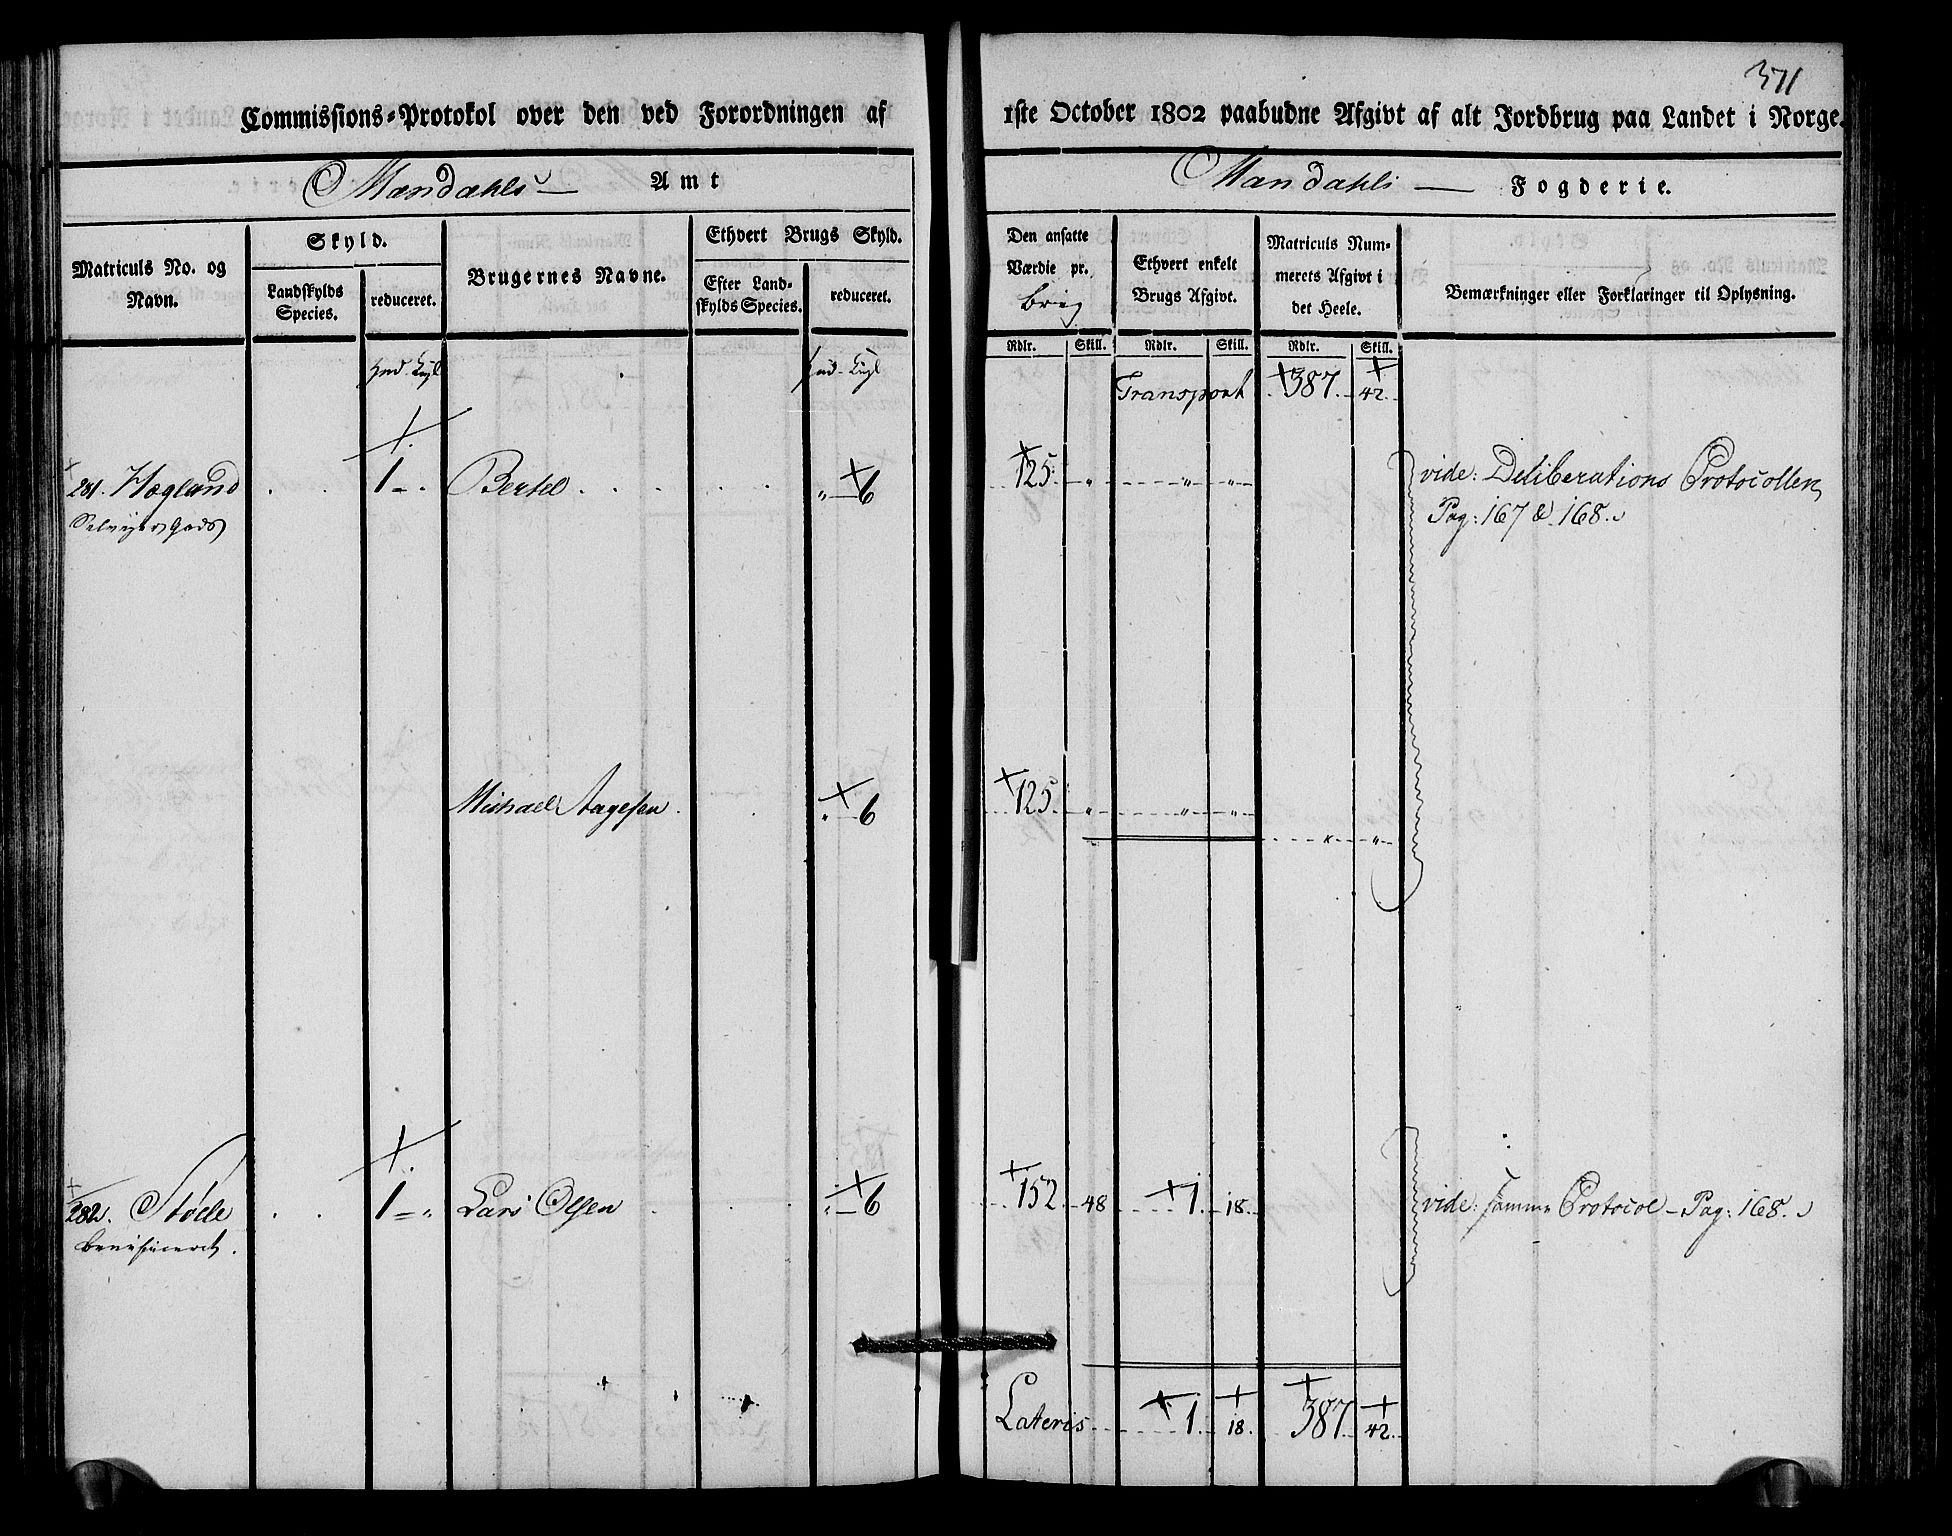 371
Commissions-Protokol over den ved Forordningen af 1ste October 1802 paabudne Afgivt af alt Jordbrug paa Landet i Norge.
Mandahls Amt Mandahls Fogderie.
Matriculs No. og Navn.
Skyld.
Landskylds Species.
reduceret.
Brugernes Navne.
Ethvert Brugs Skyld.
Efter Landskylds Species.
reduceret.
Den ansatte Værdie pr.
Ethvert enkelt Brugs Afgivt.
Matriculs Nummerets Afgivt i det Heele.
Bemærkninger eller Forklaringer til Oplysning.
Rdlr. Skill. Rdlr. Skill. Rdlr. Skill.
Transport 387. 42.
281. Høgland 1 - . Bertel „ 6 125. „ „ „ vide: Deliberations Protocollen
Selveyer Gods Pag: 167 & 168.
Michael Aagesen. „ 6 125. „ „ „
„ „
282. Støde 1 - „ Lars Olsen „ 6 152. 48 1. 18. vide: samme Protocol - Pag: 168.
beneficeret.
Lateris 1. 18. 387. 42.